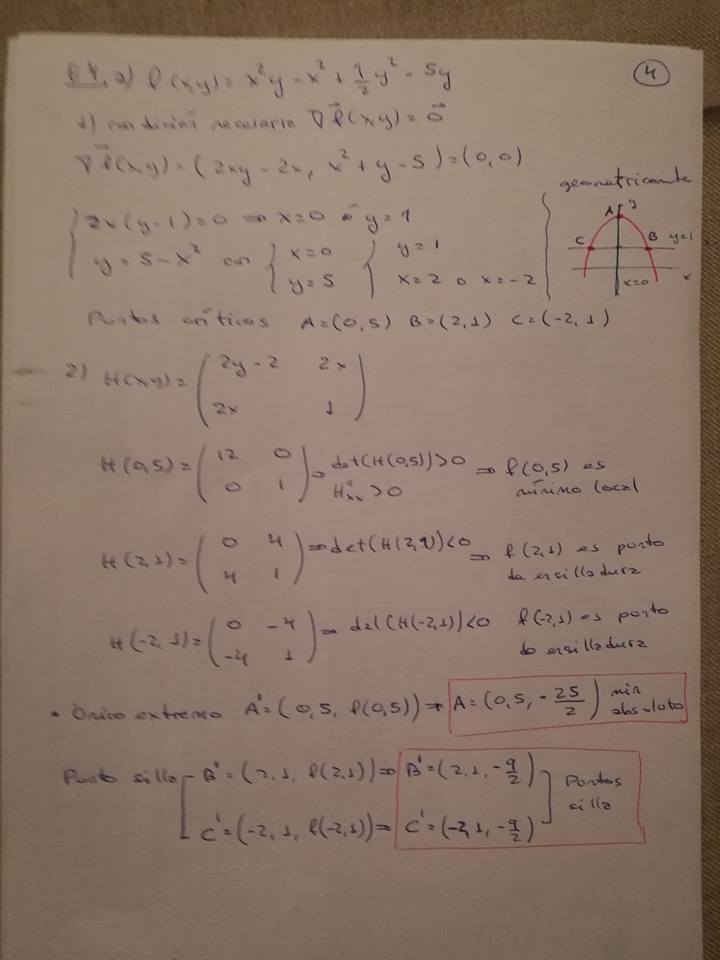 E4, a) f(x,y) = x²y - x² + 1/2 y² - 5y
4
1) condición necesaria ∇f(x,y) = 0
∇f(x,y) = (2xy - 2x, x² + y - 5) = (0,0)
{ 2x(y-1) = 0 ⇒ x=0 ó y=1
y = 5 - x² con { x=0 y=5 { y=1 x=2 o x=-2
geometricamente
A y
C B y=1
x=0 x
Puntos críticos A=(0,5) B=(2,1) C=(-2,1)
2) H(x,y) = ( 2y-2 2x
2x 1 )
H(0,5) = ( 12 0
0 1 ) ⇒ det(H(0,5)) > 0
H''xx > 0 ⇒ f(0,5) es
mínimo local
H(2,1) = ( 0 4
4 1 ) ⇒ det(H(2,1)) < 0 ⇒ f(2,1) es punto
de ensilladura
H(-2,1) = ( 0 -4
-4 1 ) ⇒ det(H(-2,1)) < 0 f(-2,1) es punto
de ensilladura
• Único extremo A' = (0,5, f(0,5)) ⇒ A = (0,5, -25/2) min
absoluto
Punto silla B' = (2,1, f(2,1)) ⇒ B' = (2,1, -9/2)
C' = (-2,1, f(-2,1)) ⇒ C' = (-2,1, -9/2)
Puntos
silla